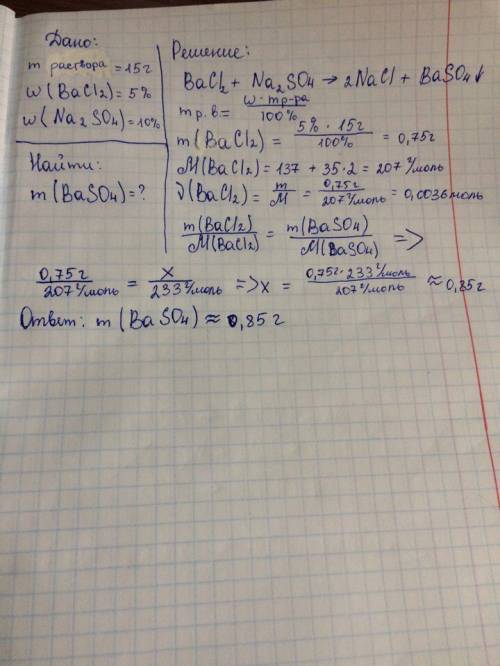 Дано:
m раствора = 15г
ω (BaCl2) = 5%
ω (Na2SO4) = 10%
Найти:
m (BaSO4) = ?
Решение:
BaCl2 + Na2SO4 → 2NaCl + BaSO4↓
m р.в. = ω · mр-ра / 100%
m (BaCl2) = 5% · 15г / 100% = 0,75г
M (BaCl2) = 137 + 35·2 = 207 г/моль
ν (BaCl2) = m / M = 0,75г / 207 г/моль = 0,0036 моль
m(BaCl2) / M(BaCl2) = m(BaSO4) / M(BaSO4) =>
0,75г / 207 г/моль = x / 233 г/моль => x = 0,75г · 233 г/моль / 207 г/моль ≈ 0,85г
Ответ: m (BaSO4) ≈ 0,85 г